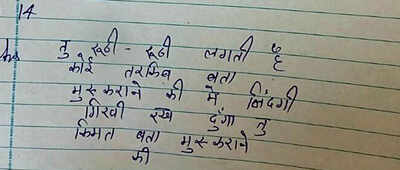 14
तु रूठी - रूठी लगती है
कोई तरकिब बता
मुस्कराने की मे जिंदगी
गिरवी रख दुंगा तु
किमत बता मुस्कराने
की